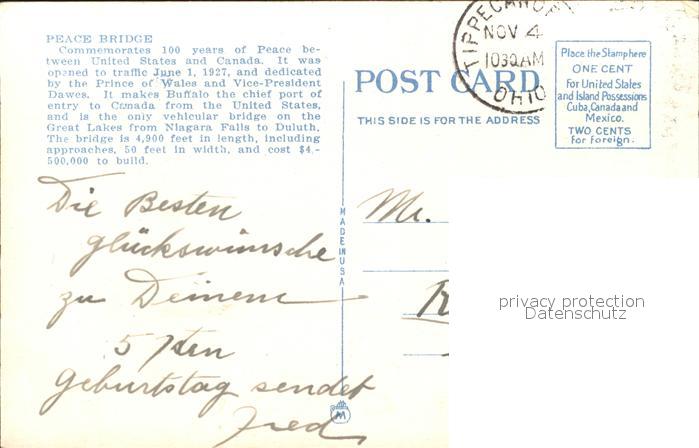 PEACE BRIDGE
Commemorates 100 years of Peace be-
tween United States and Canada. It was
opened to traffic June 1, 1927, and dedicated
by the Prince of Wales and Vice-President
Dawes. It makes Buffalo the chief port of
entry to Canada from the United States,
and is the only vehicular bridge on the
Great Lakes from Niagara Falls to Duluth.
The bridge is 4,900 feet in length, including
approaches, 50 feet in width, and cost $4,-
500,000 to build.
Die Besten
glückswünsche
zu Deinem
57ten
Geburtstag sendet
Fred
MADE IN USA
M
TIPPECANOE
NOV 4
1030AM
OHIO
POST CARD
THIS SIDE IS FOR THE ADDRESS
Place the Stamp here
ONE CENT
For United States
and Island Possessions
Cuba, Canada and
Mexico.
TWO CENTS
for foreign.
Mr.
R
privacy protection
Datenschutz